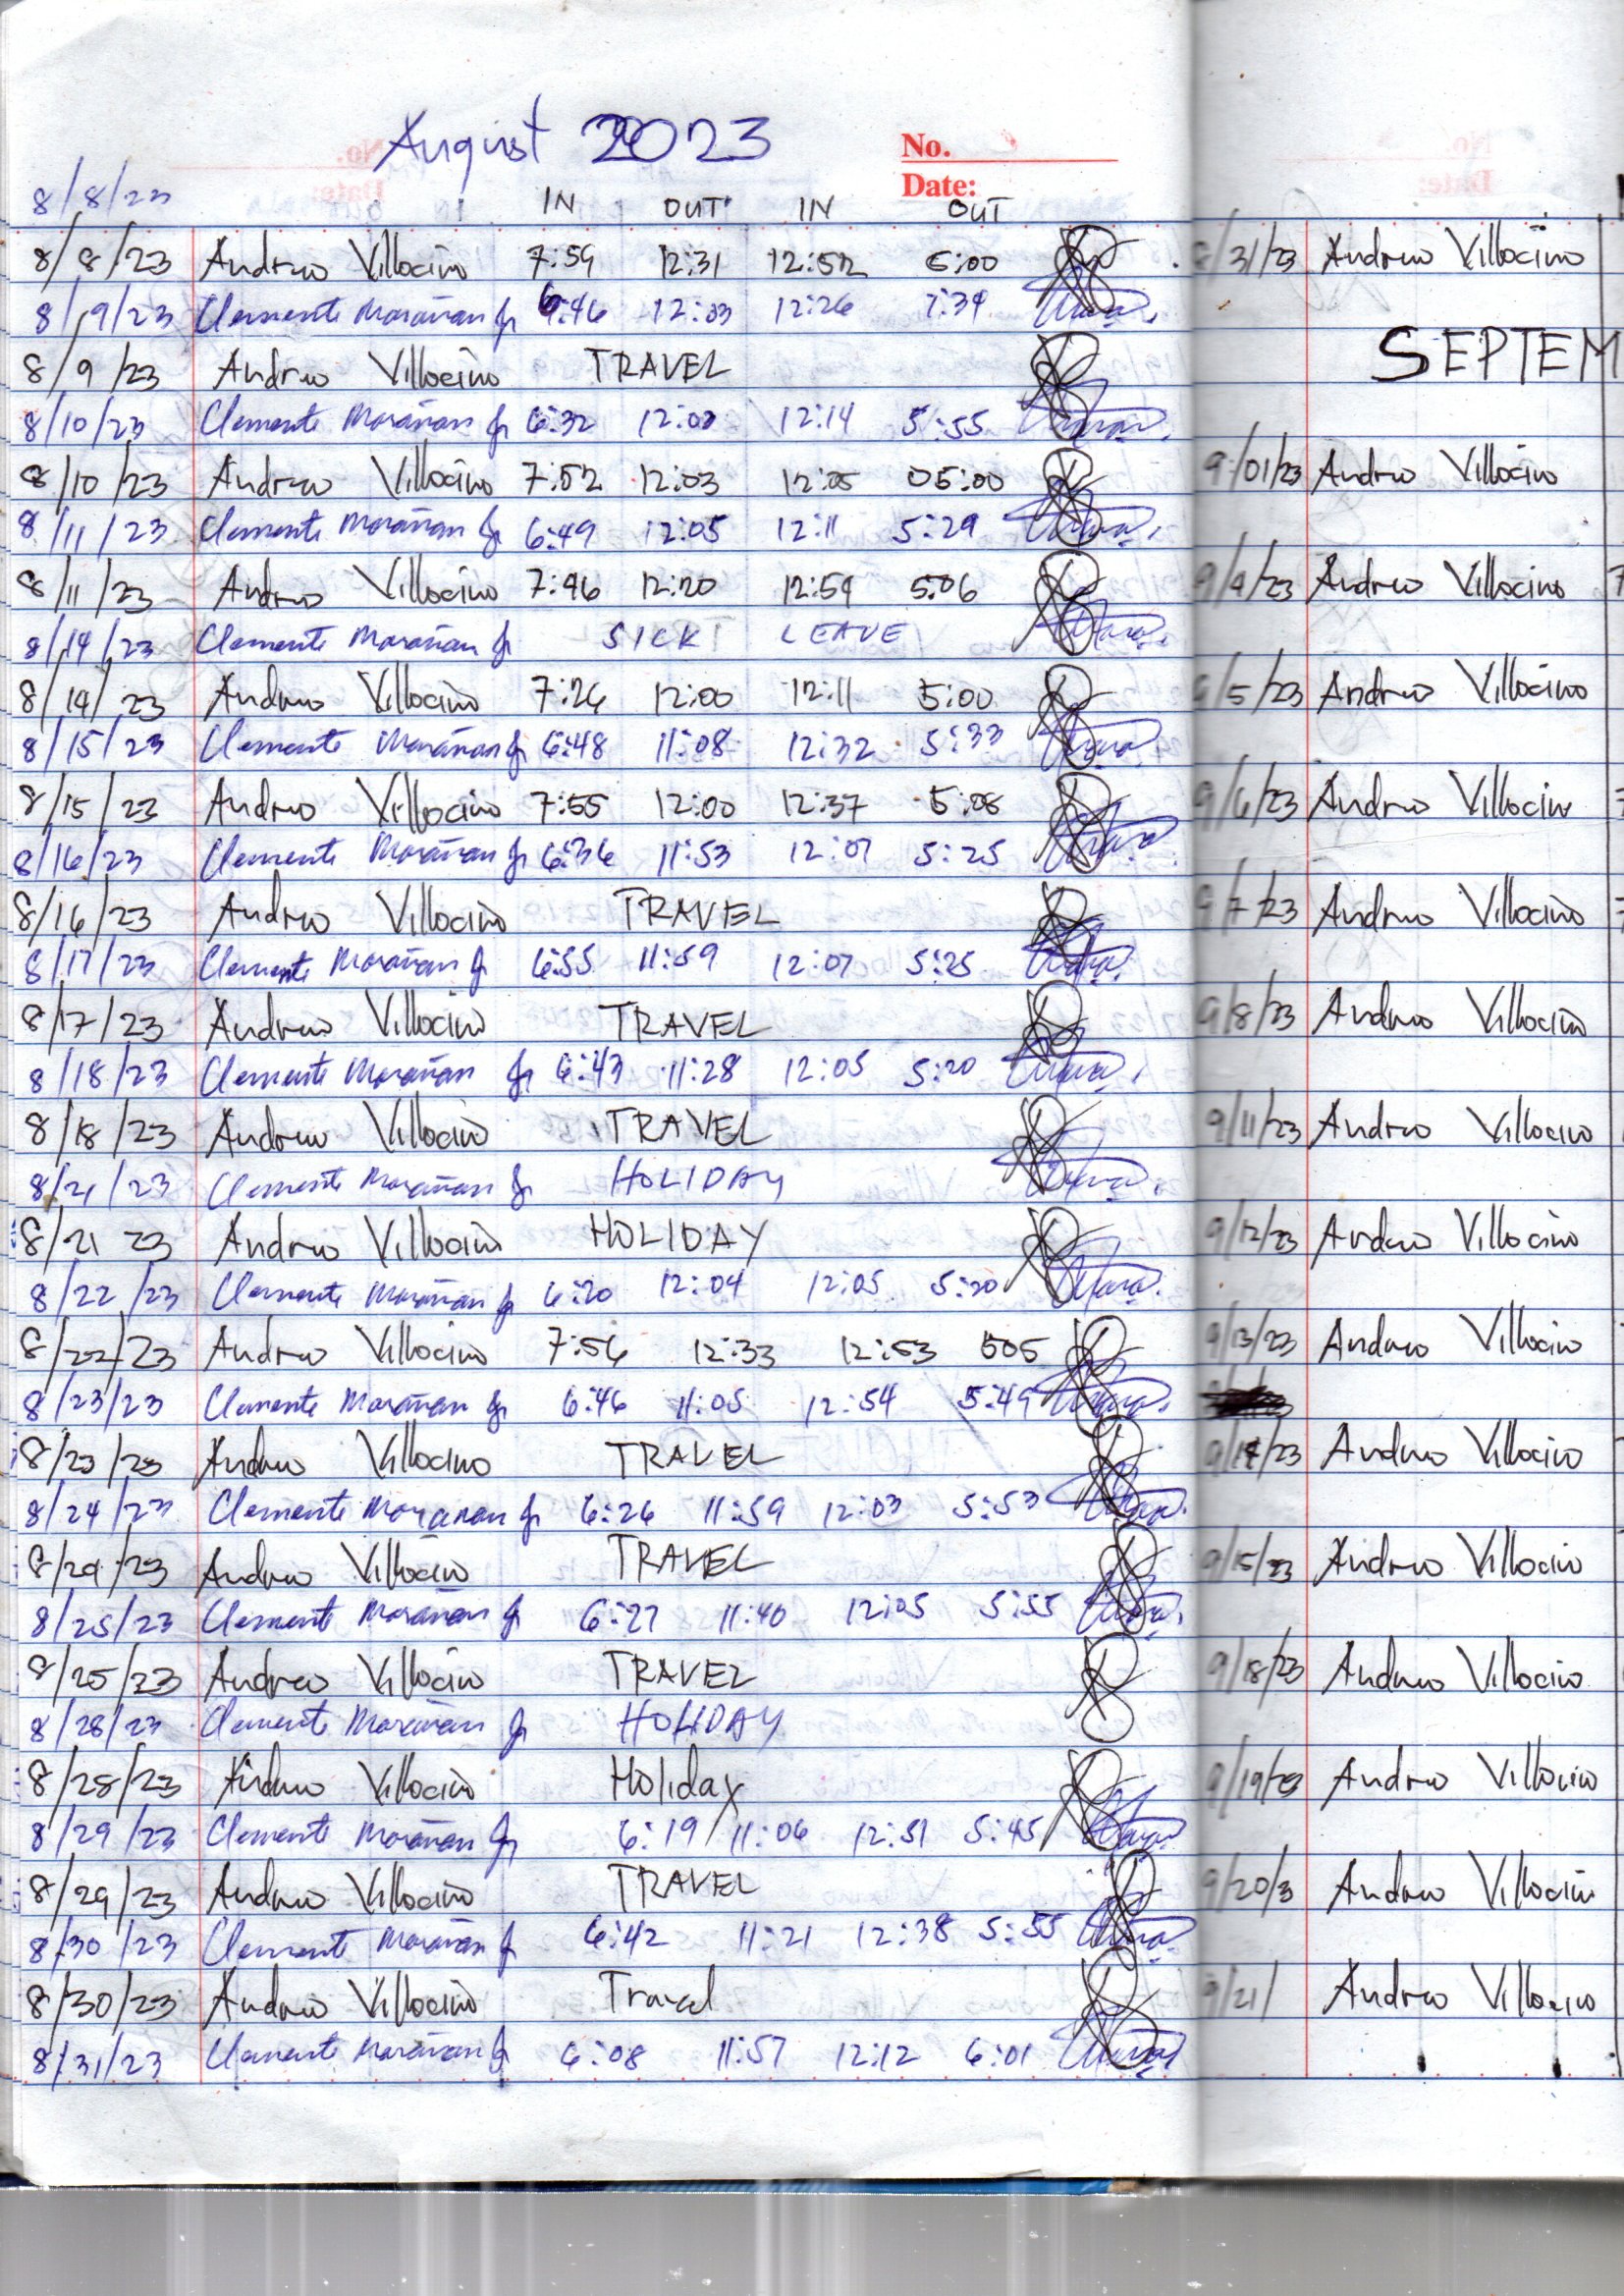 August 2023
No.
Date:
8/8/23 IN OUT IN OUT
8/8/23 Andrew Villocino 7:59 12:31 12:52 5:00
8/9/23 Clemente Morañan Jr 6:46 12:03 12:26 7:34
8/9/23 Andrew Villocino TRAVEL
8/10/23 Clemente Morañan Jr 6:32 12:03 12:14 5:55
8/10/23 Andrew Villocino 7:52 12:03 12:05 05:00
8/11/23 Clemente Morañan Jr 6:49 12:05 12:11 5:29
8/11/23 Andrew Villocino 7:46 12:20 12:59 5:06
8/14/23 Clemente Morañan Jr SICK LEAVE
8/14/23 Andrew Villocino 7:26 12:00 12:11 5:00
8/15/23 Clemente Morañan Jr 6:48 11:08 12:32 5:33
8/15/23 Andrew Villocino 7:55 12:00 12:37 5:08
8/16/23 Clemente Morañan Jr 6:36 11:53 12:07 5:25
8/16/23 Andrew Villocino TRAVEL
8/17/23 Clemente Morañan Jr 6:55 11:59 12:07 5:25
8/17/23 Andrew Villocino TRAVEL
8/18/23 Clemente Morañan Jr 6:43 11:28 12:05 5:20
8/18/23 Andrew Villocino TRAVEL
8/21/23 Clemente Morañan Jr HOLIDAY
8/21 23 Andrew Villocino HOLIDAY
8/22/23 Clemente Morañan Jr 6:20 12:04 12:05 5:20
8/22/23 Andrew Villocino 7:56 12:33 12:53 505
8/23/23 Clemente Morañan Jr 6:46 11:05 12:54 5:49
8/23/23 Andrew Villocino TRAVEL
8/24/23 Clemente Morañan Jr 6:26 11:59 12:03 5:53
8/24/23 Andrew Villocino TRAVEL
8/25/23 Clemente Morañan Jr 6:27 11:40 12:05 5:55
8/25/23 Andrew Villocino TRAVEL
8/28/23 Clemente Morañan Jr HOLIDAY
8/28/23 Andrew Villocino Holiday
8/29/23 Clemente Morañan Jr 6:19 11:06 12:51 5:45
8/29/23 Andrew Villocino TRAVEL
8/30/23 Clemente Morañan Jr 6:42 11:21 12:38 5:55
8/30/23 Andrew Villocino Travel
8/31/23 Clemente Morañan Jr 6:08 11:57 12:12 6:01
8/31/23 Andrew Villocino
SEPTEM
9/01/23 Andrew Villocino
9/4/23 Andrew Villocino
9/5/23 Andrew Villocino
9/6/23 Andrew Villocino
9/7/23 Andrew Villocino
9/8/23 Andrew Villocino
9/11/23 Andrew Villocino
9/12/23 Andrew Villocino
9/13/23 Andrew Villocino
9/14/23 Andrew Villocino
9/15/23 Andrew Villocino
9/18/23 Andrew Villocino
9/19/23 Andrew Villocino
9/20/3 Andrew Villocino
9/21/ Andrew Villocino